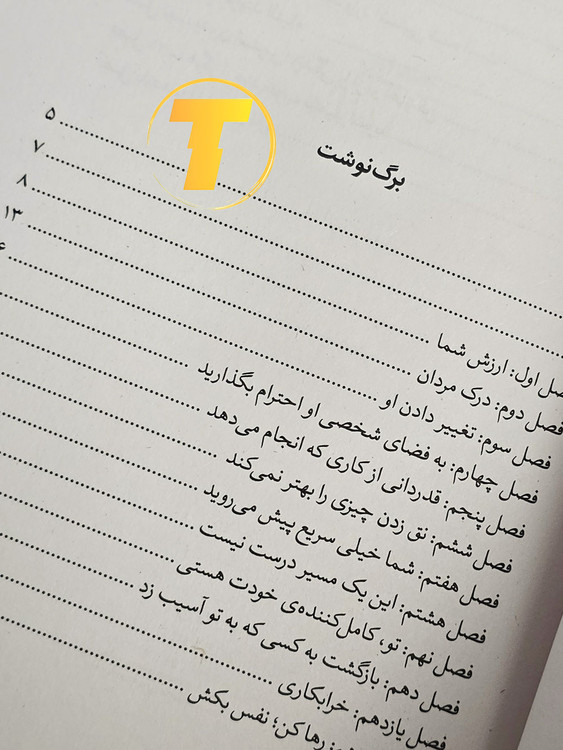 T
برگ‌نوشت
۵
۷
۸
۱۳
اول: ارزش شما
فصل دوم: درک مردان
فصل سوم: تغییر دادن او
فصل چهارم: به فضای شخصی او احترام بگذارید
فصل پنجم: قدردانی از کاری که انجام می‌دهد
فصل ششم: نق زدن چیزی را بهتر نمی‌کند
فصل هفتم: شما خیلی سریع پیش می‌روید
فصل هشتم: این یک مسیر درست نیست
فصل نهم: تو، کامل‌کننده‌ی خودت هستی
فصل دهم: بازگشت به کسی که به تو آسیب زد
فصل یازدهم: خرابکاری
رها کن؛ نفس بکش